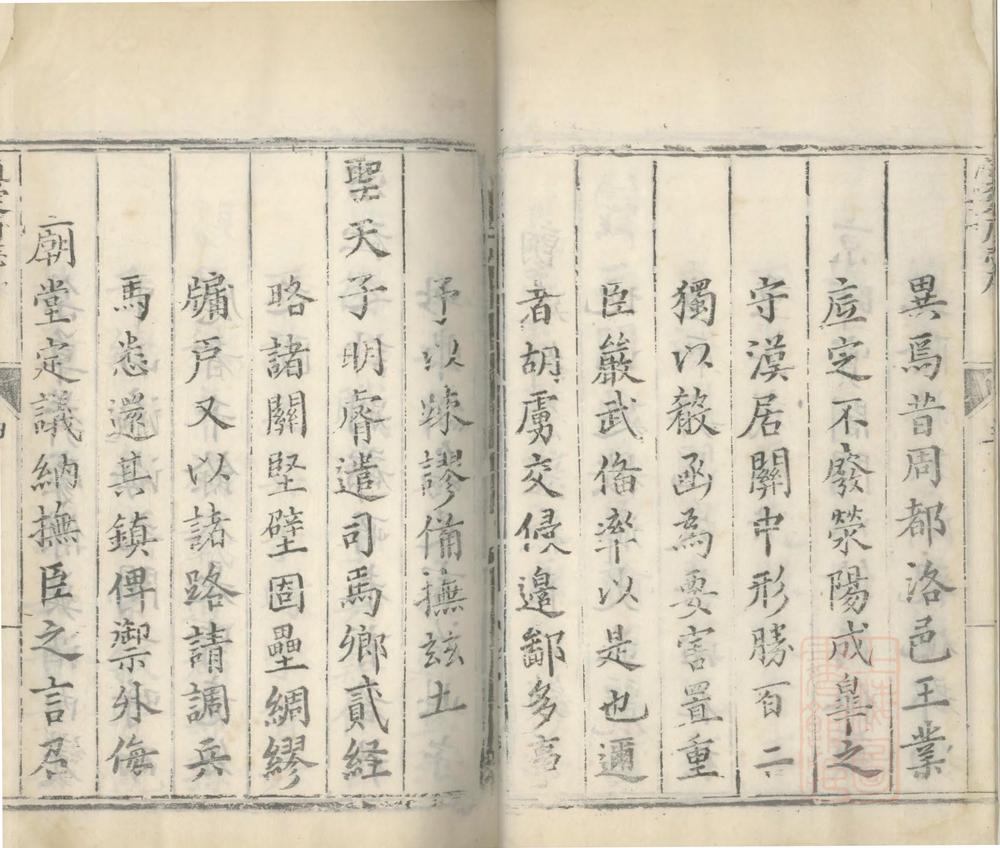 異焉昔周都洛邑王業
㝎不廢滎陽成臯之
守漢居關中形勝百二
獨以殽函為要害置重
臣嚴武俻率以是也邇
者胡虜交侵邉鄙多事
予以疎謬備撫兹土
聖天子明睿遣司馬鄉貳経
略諸關堅壁固壘綢繆
牖戸又以諸路請調兵
馬悉還其鎮俾禦外侮
廟堂定議納撫臣之言召